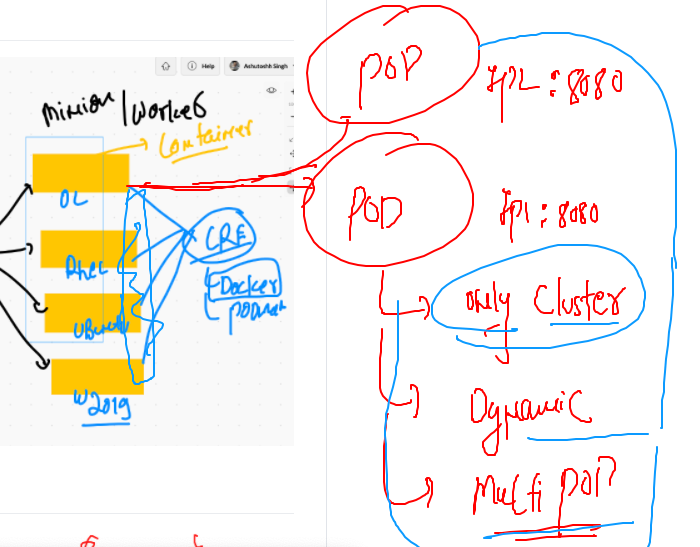 Help
Ashutashh Singh
Minion/Worker
Container
OL
Rhel
Ubuntu
W2019
CRE
Docker
Podman
POD
IP2:8080
POD
IP1:8080
only Cluster
Dynamic
Multi POD